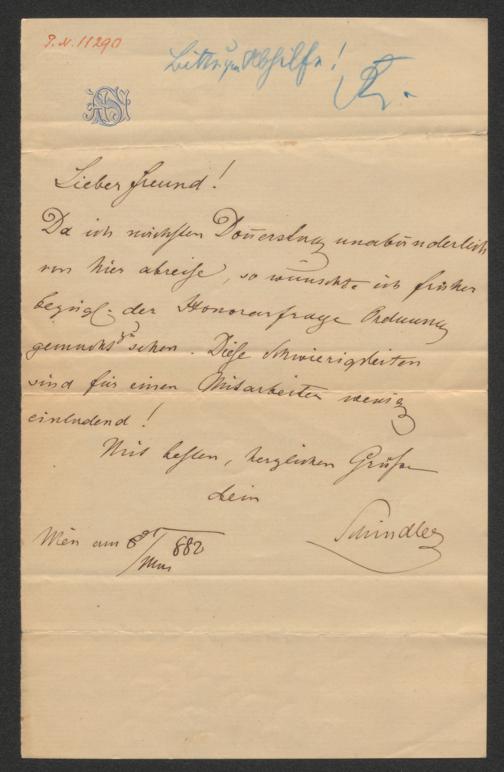 I.N. 11290
Bitte um Abhilfe!
Lieber Freund!
Da ich nächsten Donnerstag unabänderlich
von hier abreise, so wünschte ich früher
bezügl. der Honorarfrage Ordnung
gemacht zu sehen. Diese Schwierigkeiten
sind für einen Mitarbeiter wenig
einladend!
Mit besten, herzlichen Grüßen
Dein
Schindler
Wien am 8 882